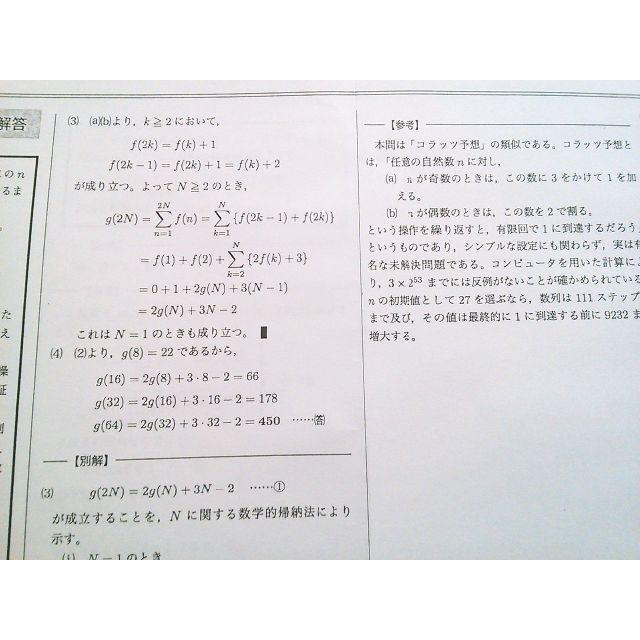 解答
のn
るま
た
え
操
証
(3) (a)(b)より，k≧2において，
f(2k)=f(k)+1
f(2k−1)=f(2k)+1=f(k)+2
が成り立つ。よってN≧2のとき，
g(2N)=∑_{n=1}^{2N} f(n)=∑_{k=1}^{N} {f(2k−1)+f(2k)}
=f(1)+f(2)+∑_{k=2}^{N} {2f(k)+3}
=0+1+2g(N)+3(N−1)
=2g(N)+3N−2
これはN=1のときも成り立つ。 ■
(4) (2)より，g(8)=22であるから，
g(16)=2g(8)+3·8−2=66
g(32)=2g(16)+3·16−2=178
g(64)=2g(32)+3·32−2=450 ……(答)
【別解】
(3) g(2N)=2g(N)+3N−2 ……①
が成立することを，Nに関する数学的帰納法により
示す。
(i) N=1のとき
【参考】
本問は「コラッツ予想」の類似である。コラッツ予想と
は，「任意の自然数nに対し，
(a) nが奇数のときは，この数に3をかけて1を加
える。
(b) nが偶数のときは，この数を2で割る。
という操作を繰り返すと，有限回で1に到達するだろう」
というものであり，シンプルな設定にも関わらず，実は有
名な未解決問題である。コンピュータを用いた計算によ
り，3×2^{53}までには反例がないことが確かめられている
nの初期値として27を選ぶなら，数列は111ステップ
まで及び，その値は最終的に1に到達する前に9232ま
増大する。